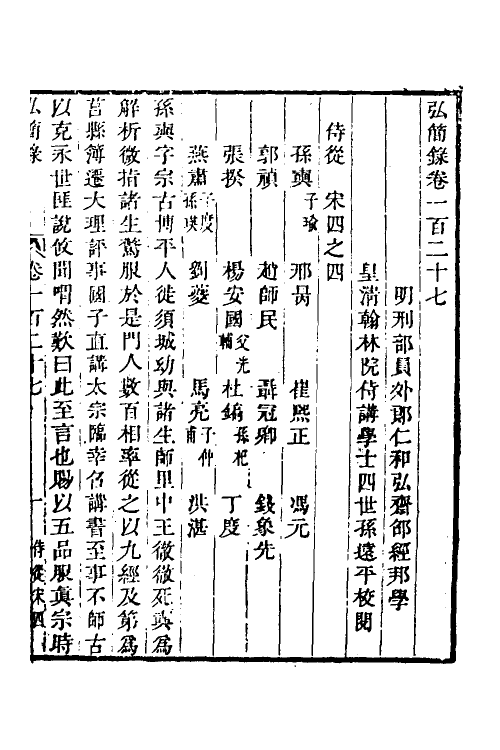 弘簡錄卷一百二十七
明刑部員外郎仁和弘齋邵經邦學
皇清翰林院侍講學士四世孫遠平校閱
侍從 宋四之四
孫奭子瑜 邢昺 崔熙正 馮元
郭禎 趙師民 聶冠卿 錢象先
張揆 楊安國父光輔 杜鎬孫杞 丁度
燕肅子度孫瑛 劉夔 馬亮子仲甫 洪湛
孫奭字宗古博平人徙須城幼與諸生師里中王徹徹死奭爲
解析微指諸生驚服於是門人數百相率從之以九經及第爲
莒縣簿遷大理評事國子直講太宗臨幸召講書至事不師古
以克永世匪說攸聞喟然歎曰此至言也賜以五品服眞宗時
弘簡錄 卷一百二十七 一 侍從宋四